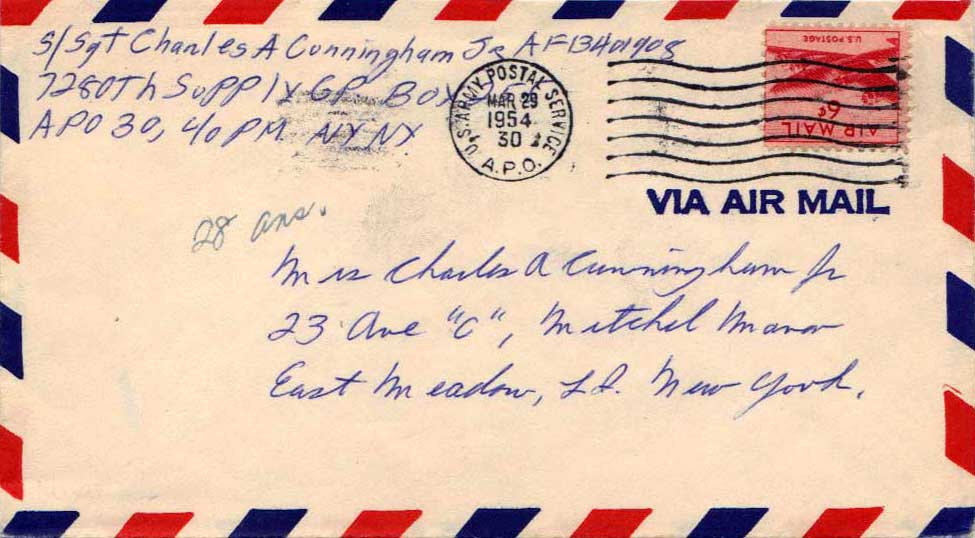 S/Sgt Charles A Cunningham Jr AF13401908
7280Th Supply GP. BOX
APO 30, c/o PM. NY NY.
U.S. ARMY POSTAL SERVICE
MAR 29
1954
30
A.P.O.
U.S. POSTAGE
6¢
AIR MAIL
VIA AIR MAIL
28 ans.
Mrs Charles A Cunningham Jr
23 Ave "C", Mitchel Manor
East Meadow, L.I. New York.